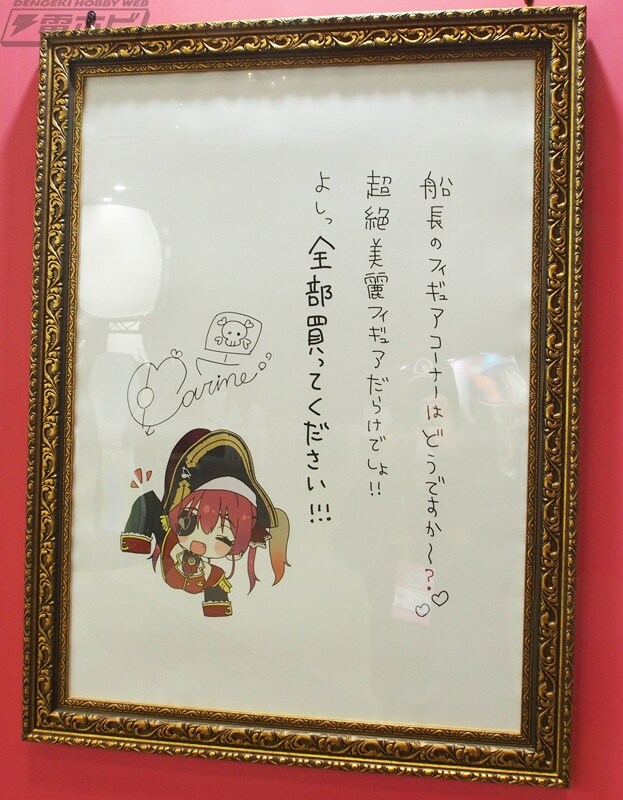 DENGEKI HOBBY WEB
電ホビ
船長のフィギュアコーナーはどうですか〜?♡♡
超絶美麗フィギュアだらけでしょ!!
よしっ全部買ってください!!!
Marine